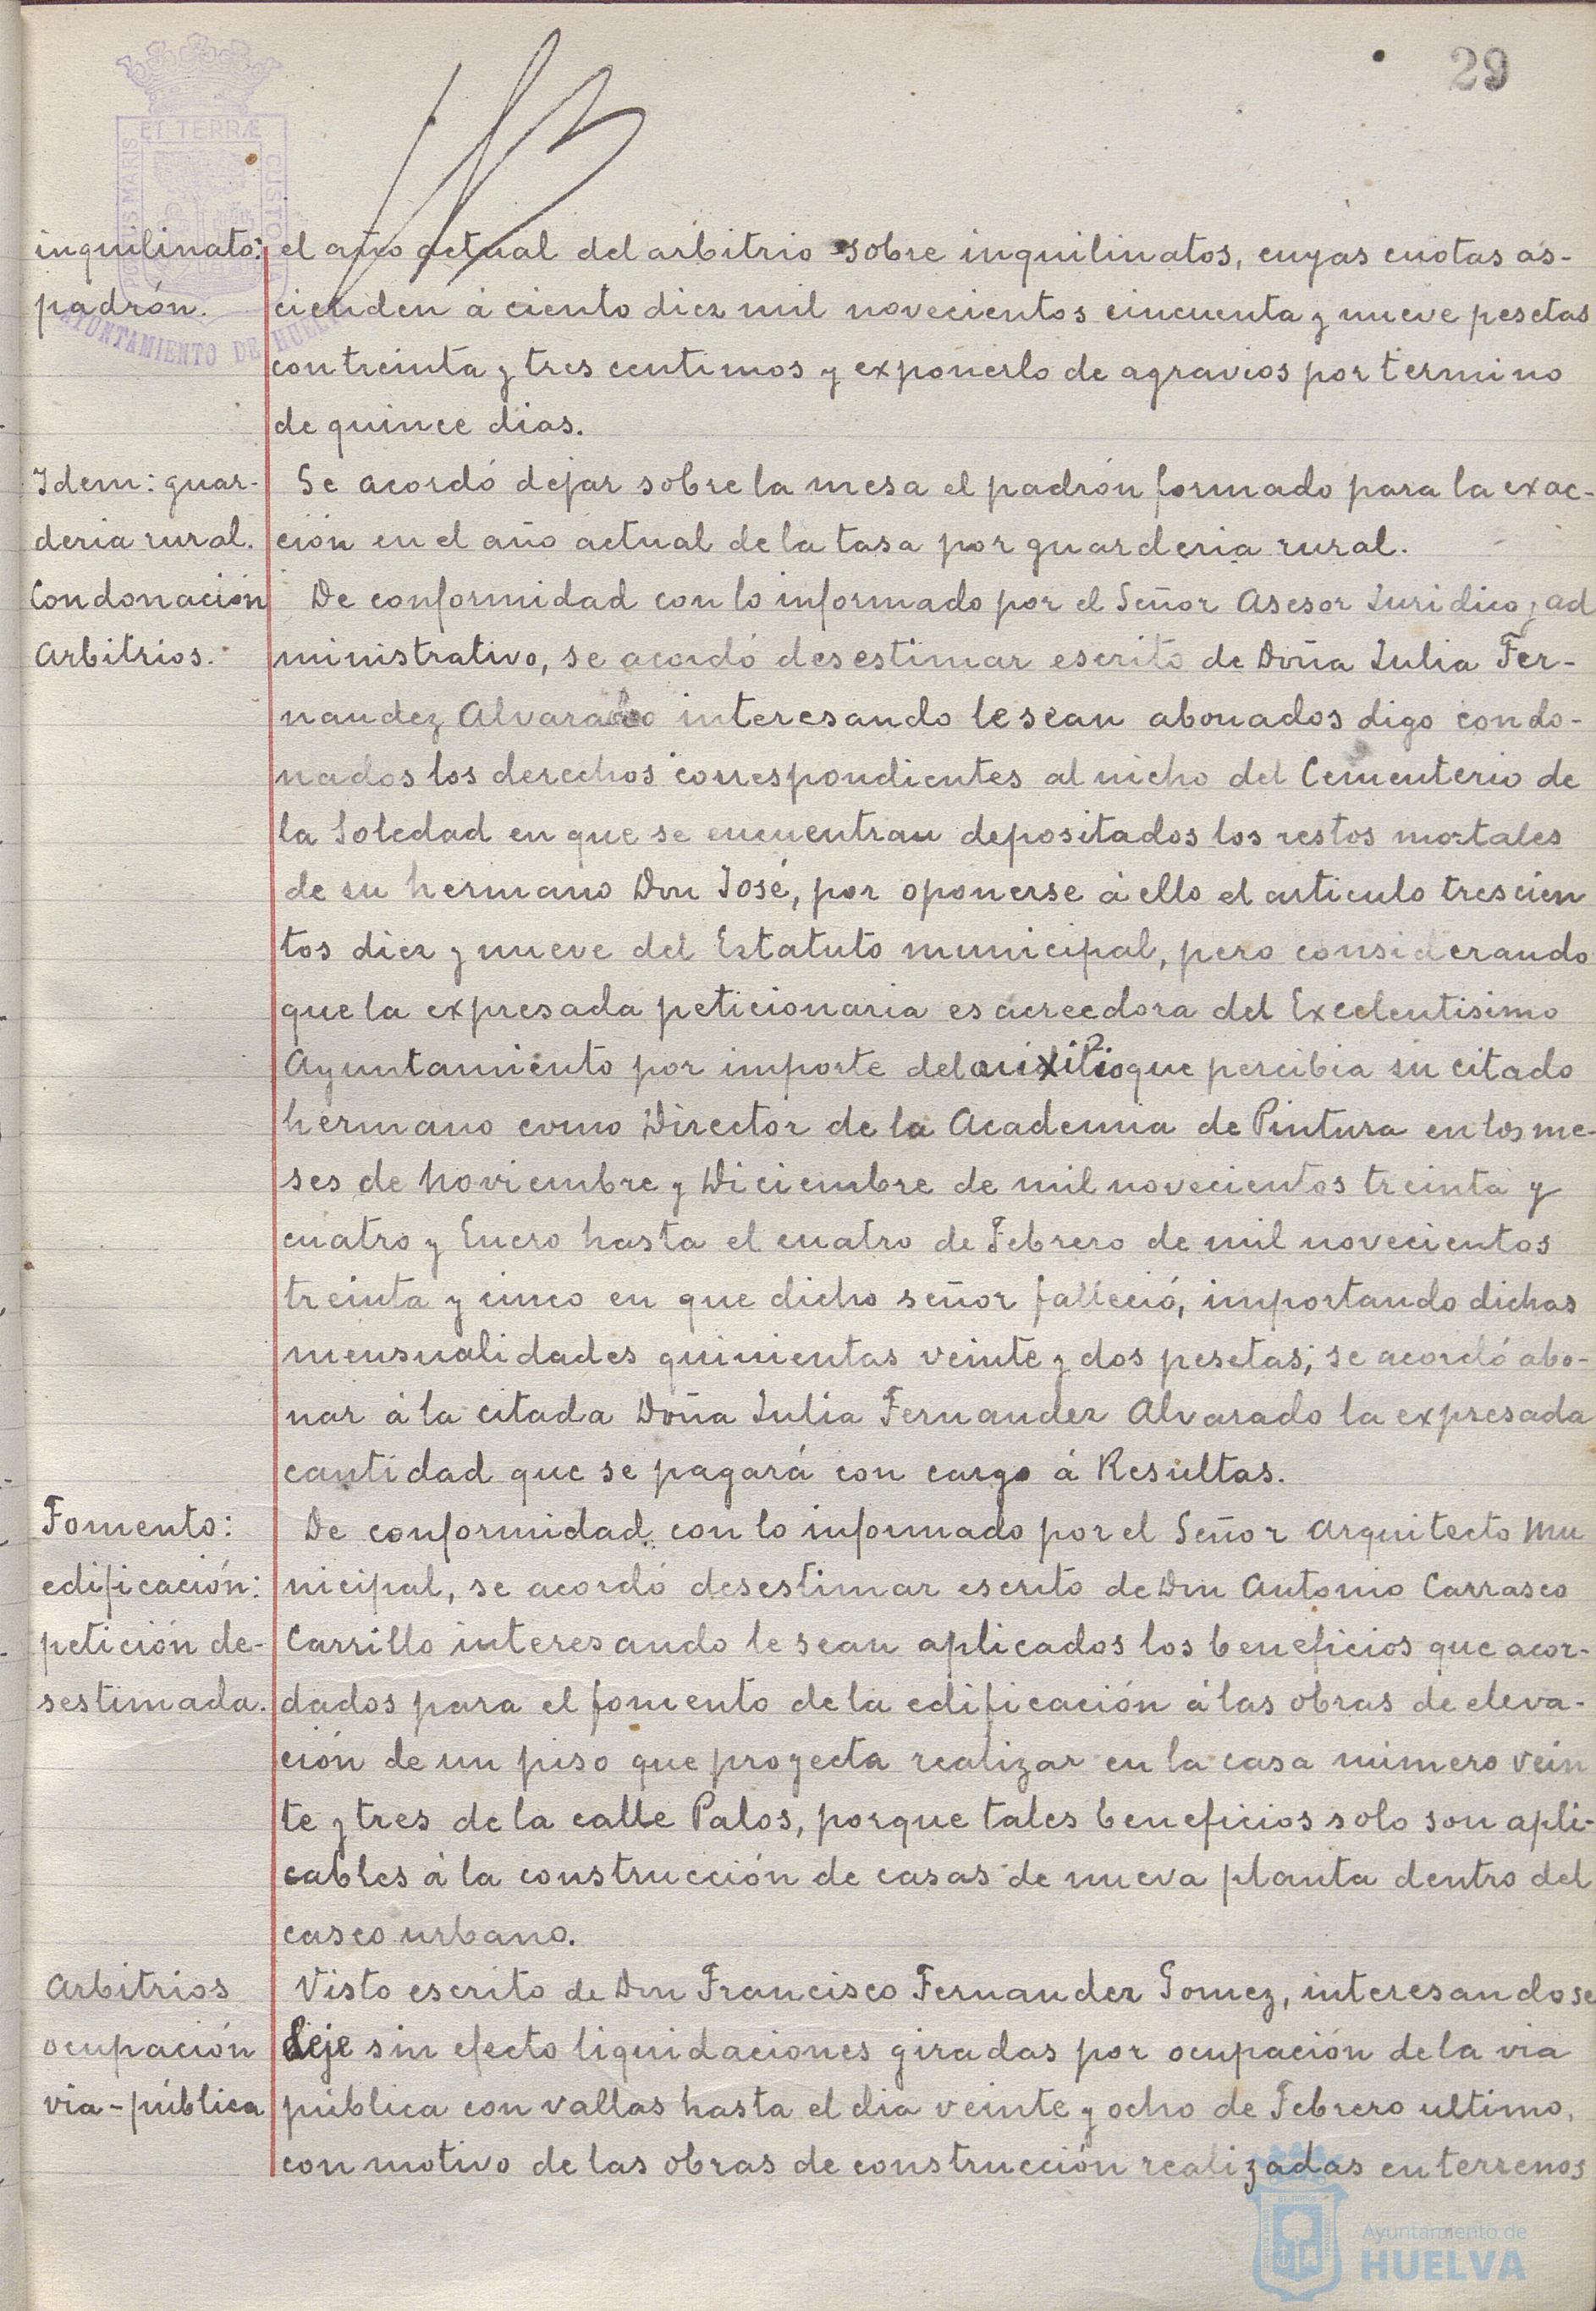 29
ET TERRÆ
PORTUS MARIS
CUSTO
AYUNTAMIENTO DE HUELVA
inquilinato: el año actual del arbitrio sobre inquilinatos, cuyas cuotas as-
padrón. cienden á ciento diez mil novecientos cincuenta y nueve pesetas
con treinta y tres centimos y exponerlo de agravios por termino
de quince dias.
Idem: guar- Se acordó dejar sobre la mesa el padrón formado para la exac-
deria rural. ción en el año actual de la tasa por guarderia rural.
Condonación De conformidad con lo informado por el Señor Asesor Juridico y ad
Arbitrios. ministrativo, se acordó desestimar escrito de Doña Julia Fer-
nandez Alvarado interesando le sean abonados digo condo-
nados los derechos correspondientes al nicho del Cementerio de
la Soledad en que se encuentran depositados los restos mortales
de su hermano Don José, por oponerse á ello el articulo trescien
tos diez y nueve del Estatuto municipal, pero considerando
que la expresada peticionaria es acreedora del Excelentisimo
Ayuntamiento por importe del auxilio que percibia su citado
hermano como Director de la Academia de Pintura en los me-
ses de Noviembre y Diciembre de mil novecientos treinta y
cuatro y Enero hasta el cuatro de Febrero de mil novecientos
treinta y cinco en que dicho señor falleció, importando dichas
mensualidades quinientas veinte y dos pesetas; se acordó abo-
nar á la citada Doña Julia Fernandez Alvarado la expresada
cantidad que se pagará con cargo á Resultas.
Fomento: De conformidad con lo informado por el Señor Arquitecto Mu
edificación: nicipal, se acordó desestimar escrito de Don Antonio Carrasco
petición de- Carrillo interesando le sean aplicados los beneficios que acor-
sestimada. dados para el fomento de la edificación á las obras de eleva-
ción de un piso que proyecta realizar en la casa número vein
te y tres de la calle Palos, porque tales beneficios solo son apli-
cables á la construcción de casas de nueva planta dentro del
casco urbano.
Arbitrios Visto escrito de Don Francisco Fernandez Gomez, interesando se
ocupación deje sin efecto liquidaciones giradas por ocupación de la via
via-pública pública con vallas hasta el dia veinte y ocho de Febrero ultimo,
con motivo de las obras de construcción realizadas en terrenos
Ayuntamiento de
HUELVA